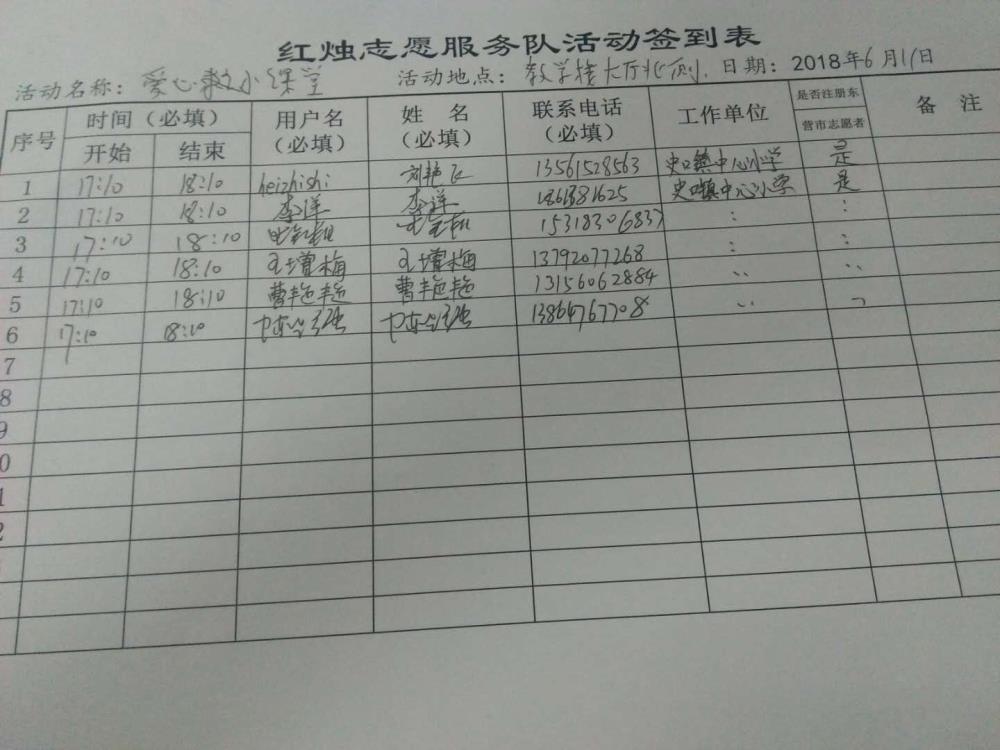 红烛志愿服务队活动签到表
活动名称: 爱心小课堂 活动地点: 教学楼大厅北侧. 日期: 2018年6月11日
序号 时间(必填) 用户名(必填) 姓名(必填) 联系电话(必填) 工作单位 是否注册东营市志愿者 备注
开始 结束
1 17:10 18:10 heizhishi 13561528563 史口镇中心小学 是
2 17:10 18:10 李洋 李洋 史口镇中心小学 是
3 17:10 18:10 15318306837 : :
4 17:10 18:10 王增梅 王增梅 13792077268 : :
5 17:10 18:10 曹艳艳 曹艳艳 13156062884 ·· ··
6 17:10 18:10 13864767708 ··
7
8
9
0
1
2